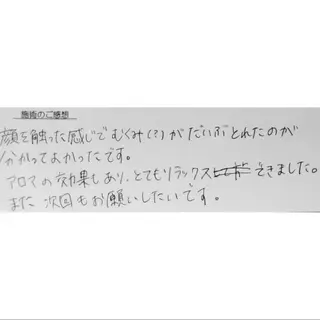 施術のご感想
顔を触った感じでむくみ(?)がだいぶとれたのが
分かってよかったです。
アロマの効果もあり、とてもリラックスできました。
また次回もお願いしたいです。